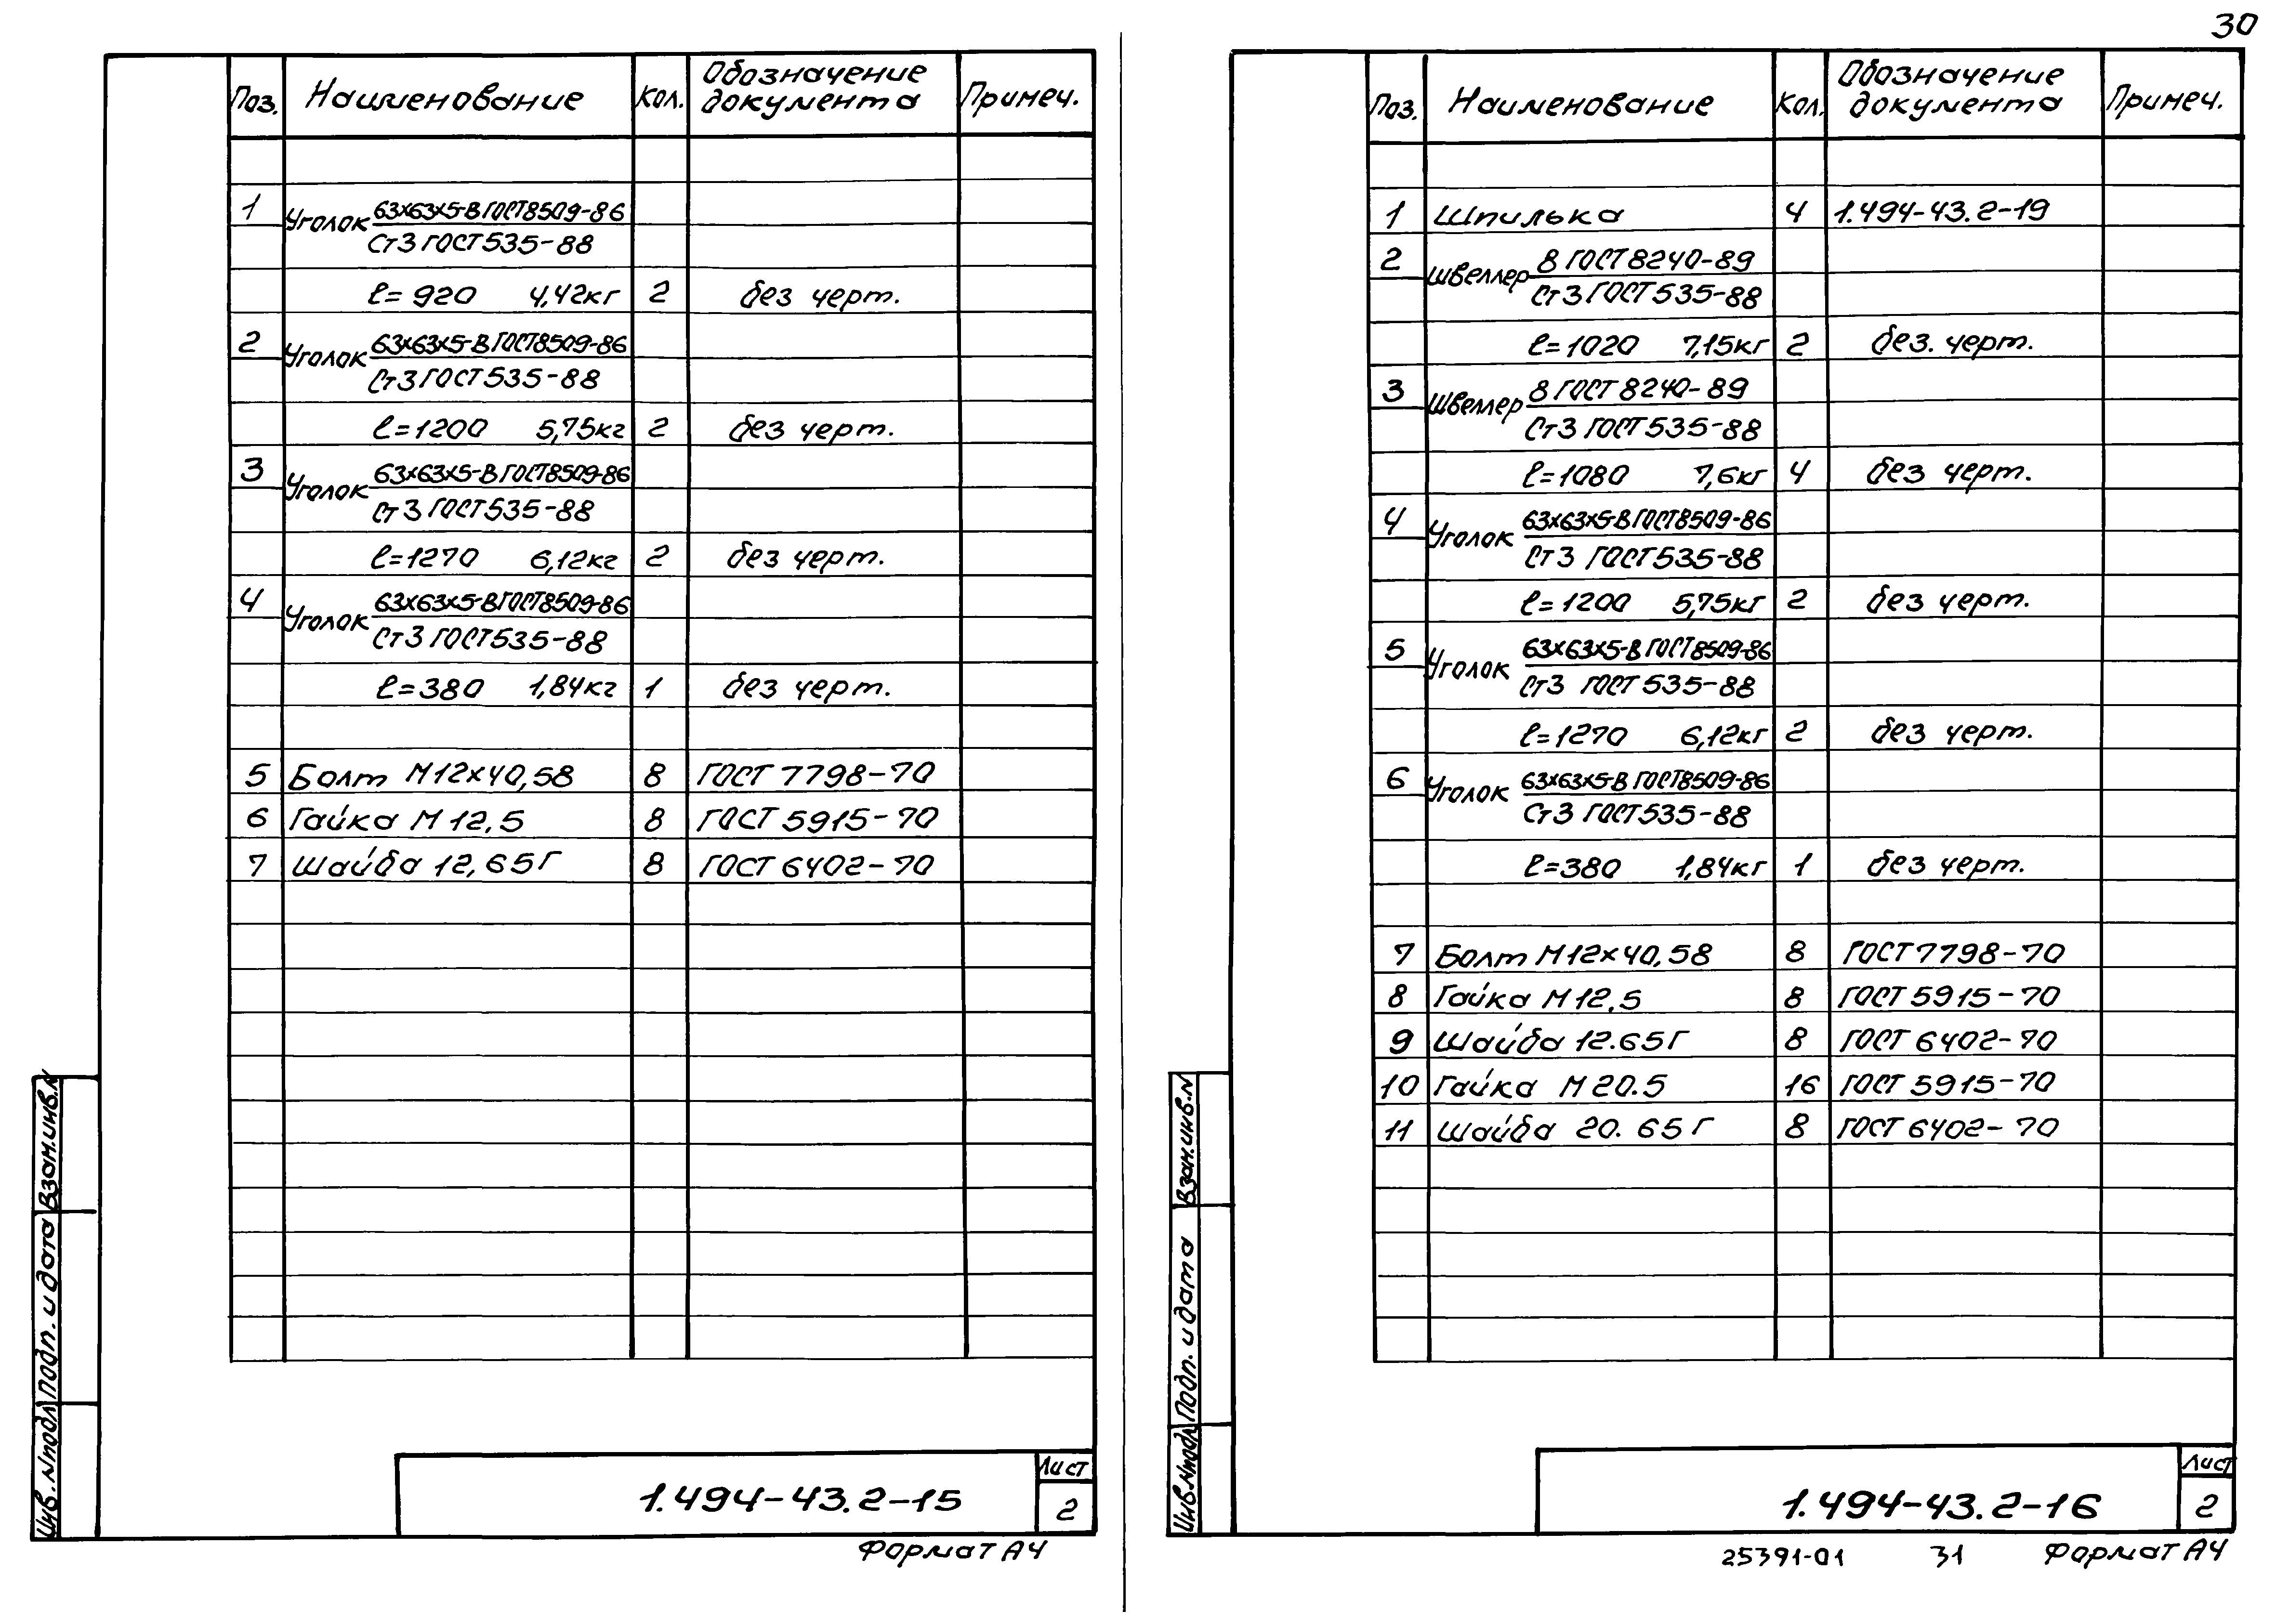 30
Поз. Наименование Кол. Обозначение документа Примеч.
1 Уголок 63х63х5-В ГОСТ8509-86
Ст3 ГОСТ535-88
ℓ=920 4,42кг 2 без черт.
2 Уголок 63х63х5-В ГОСТ8509-86
Ст3 ГОСТ535-88
ℓ=1200 5,75кг 2 без черт.
3 Уголок 63х63х5-В ГОСТ8509-86
Ст3 ГОСТ535-88
ℓ=1270 6,12кг 2 без черт.
4 Уголок 63х63х5-В ГОСТ8509-86
Ст3 ГОСТ535-88
ℓ=380 1,84кг 1 без черт.
5 Болт М12х40,58 8 ГОСТ 7798-70
6 Гайка М12,5 8 ГОСТ 5915-70
7 Шайба 12,65Г 8 ГОСТ 6402-70
Взам.инв.N
Подп. и дата
Инв.Nподл
1.494-43.2-15
Лист
2
Формат А4
Поз. Наименование Кол. Обозначение документа Примеч.
1 Шпилька 4 1.494-43.2-19
2 Швеллер 8 ГОСТ8240-89
Ст3 ГОСТ535-88
ℓ=1020 7,15кг 2 без. черт.
3 Швеллер 8 ГОСТ8240-89
Ст3 ГОСТ535-88
ℓ=1080 7,6кг 4 без черт.
4 Уголок 63х63х5-В ГОСТ8509-86
Ст3 ГОСТ535-88
ℓ=1200 5,75кг 2 без черт.
5 Уголок 63х63х5-В ГОСТ8509-86
Ст3 ГОСТ535-88
ℓ=1270 6,12кг 2 без черт.
6 Уголок 63х63х5-В ГОСТ8509-86
Ст3 ГОСТ535-88
ℓ=380 1,84кг 1 без черт.
7 Болт М12х40,58 8 ГОСТ7798-70
8 Гайка М12,5 8 ГОСТ 5915-70
9 Шайба 12.65Г 8 ГОСТ 6402-70
10 Гайка М20.5 16 ГОСТ 5915-70
11 Шайба 20.65Г 8 ГОСТ 6402-70
Взам.инв.N
Подп. и дата
Инв.Nподл
1.494-43.2-16
Лист
2
25391-01 31 Формат А4